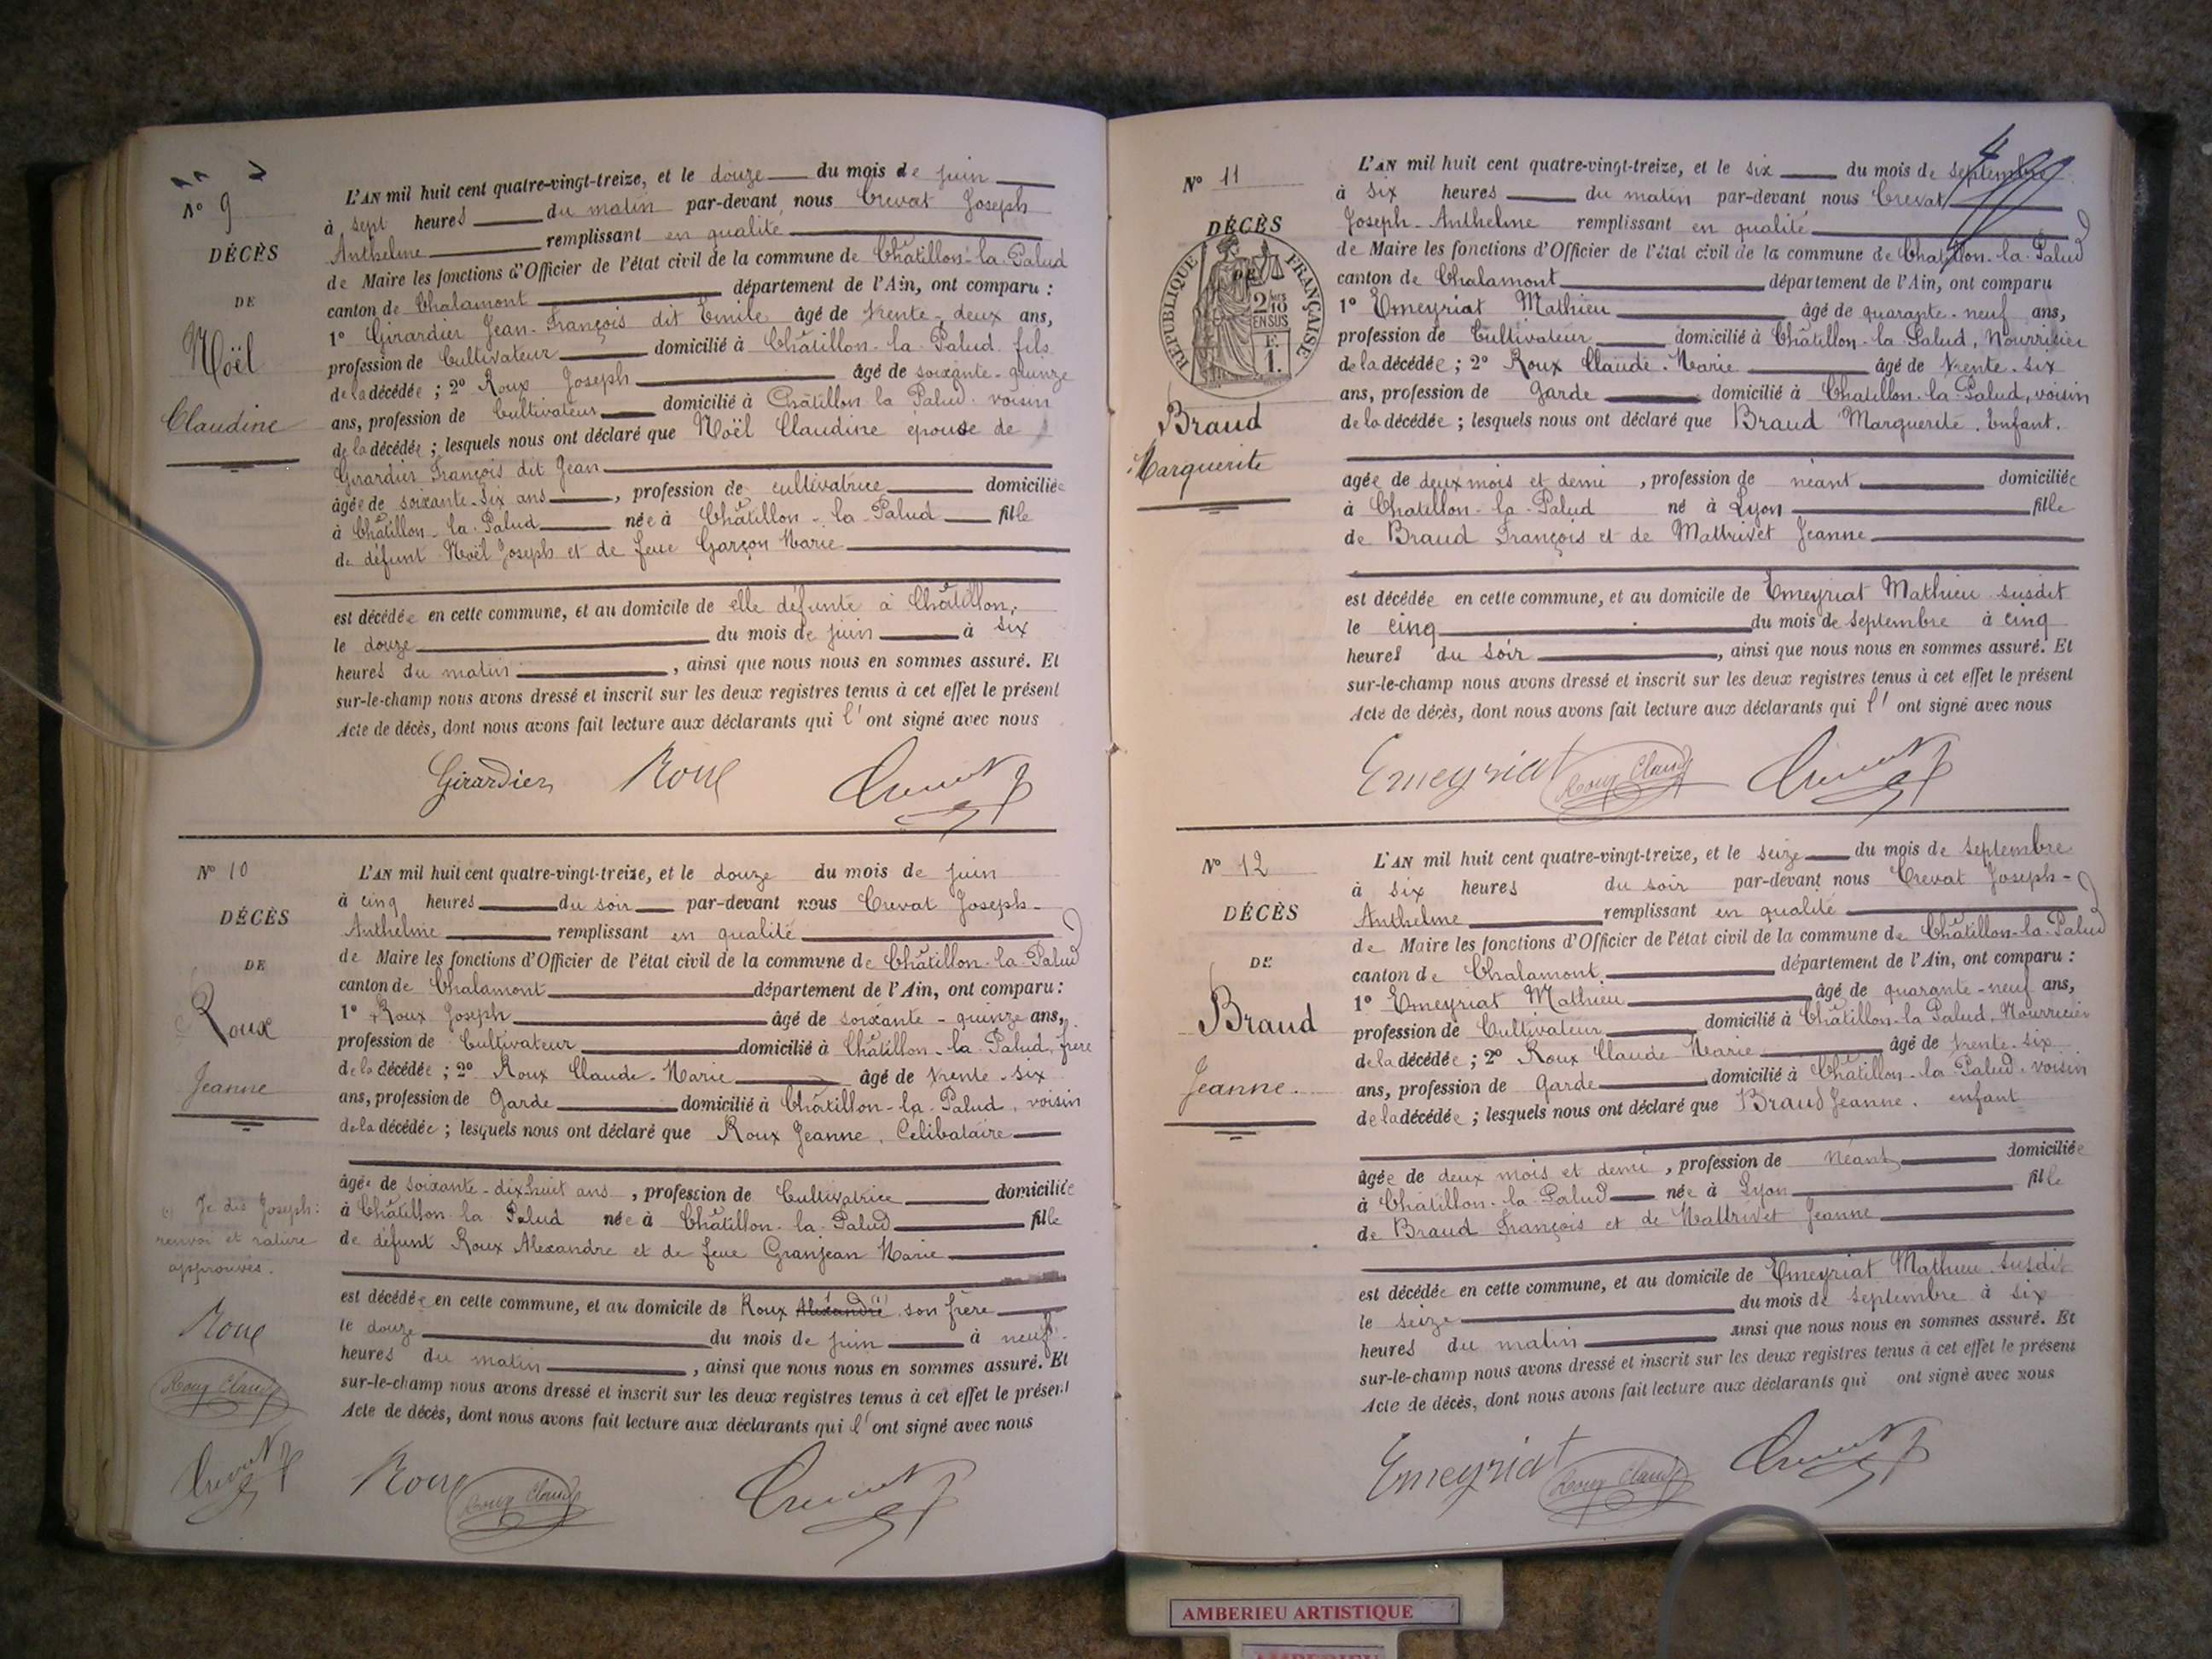 N° 9
DÉCÈS
DE
Noël
Claudine
L'AN mil huit cent quatre-vingt-treize, et le douze du mois de juin
à sept heures du matin par-devant nous Crevat Joseph
Anthelme remplissant en qualité
de Maire les fonctions d'Officier de l'état civil de la commune de Châtillon-la-Palud
canton de Chalamont département de l'Ain, ont comparu :
1° Girardier Jean-François dit Emile âgé de trente-deux ans,
profession de Cultivateur domicilié à Châtillon-la-Palud. fils
de la décédée ; 2° Roux Joseph âgé de soixante-quinze
ans, profession de Cultivateur domicilié à Châtillon la Palud. voisin
de la décédée ; lesquels nous ont déclaré que Noël Claudine épouse de
Girardier François dit Jean
âgée de soixante-six ans, profession de cultivatrice domiciliée
à Châtillon-la-Palud née à Châtillon-la-Palud fille
de défunt Noël Joseph et de feue Garçon Marie
est décédée en cette commune, et au domicile de elle défunte à Châtillon,
le douze du mois de juin à six
heures du matin, ainsi que nous nous en sommes assuré. Et
sur-le-champ nous avons dressé et inscrit sur les deux registres tenus à cet effet le présent
Acte de décès, dont nous avons fait lecture aux déclarants qui l'ont signé avec nous
Girardier Roux Crevat
N° 10
DÉCÈS
DE
Roux
Jeanne
L'AN mil huit cent quatre-vingt-treize, et le douze du mois de juin
à cinq heures du soir par-devant nous Crevat Joseph-
Anthelme remplissant en qualité
de Maire les fonctions d'Officier de l'état civil de la commune de Châtillon-la-Palud
canton de Chalamont département de l'Ain, ont comparu :
1° Roux Joseph âgé de soixante-quinze ans,
profession de Cultivateur domicilié à Châtillon-la-Palud, frère
de la décédée ; 2° Roux Claude-Marie âgé de trente-six
ans, profession de Garde domicilié à Châtillon-la-Palud, voisin
de la décédée ; lesquels nous ont déclaré que Roux Jeanne, Celibataire
âgée de soixante-dix huit ans, profession de Cultivatrice domiciliée
à Châtillon la Palud née à Châtillon-la-Palud fille
de défunt Roux Alexandre et de feue Granjean Marie
est décédée en cette commune, et au domicile de Roux Alexandre son frère
le douze du mois de juin à neuf
heures du matin, ainsi que nous nous en sommes assuré. Et
sur-le-champ nous avons dressé et inscrit sur les deux registres tenus à cet effet le présent
Acte de décès, dont nous avons fait lecture aux déclarants qui l'ont signé avec nous
Je dis Joseph:
renvoi et rature
approuvés.
Roux
Roux Claude
Crevat
Roux Roux Claude Crevat
4
N° 11
DÉCÈS
DE
RÉPUBLIQUE FRANÇAISE
2/10
EN SUS
F.
1.
Braud
Marguerite
L'AN mil huit cent quatre-vingt-treize, et le six du mois de septembre
à six heures du matin par-devant nous Crevat
Joseph-Anthelme remplissant en qualité
de Maire les fonctions d'Officier de l'état civil de la commune de Châtillon-la-Palud
canton de Chalamont département de l'Ain, ont comparu
1° Emeyriat Mathieu âgé de quarante-neuf ans,
profession de Cultivateur domicilié à Châtillon-la-Palud, Nourricier
de la décédée ; 2° Roux Claude-Marie âgé de trente-six
ans, profession de garde domicilié à Chatillon-la-Palud, voisin
de la décédée ; lesquels nous ont déclaré que Braud Marguerite. Enfant.
agée de deux mois et demi, profession de néant domiciliée
à Chatillon-la-Palud né à Lyon fille
de Braud François et de Mattrivet Jeanne
est décédée en cette commune, et au domicile de Emeyriat Mathieu susdit
le cinq du mois de septembre à cinq
heures du soir, ainsi que nous nous en sommes assuré. Et
sur-le-champ nous avons dressé et inscrit sur les deux registres tenus à cet effet le présent
Acte de décès, dont nous avons fait lecture aux déclarants qui l'ont signé avec nous
Emeyriat Roux Claude Crevat
N° 12
DÉCÈS
DE
Braud
Jeanne.
L'AN mil huit cent quatre-vingt-treize, et le seize du mois de septembre
à six heures du soir par-devant nous Crevat Joseph-
Anthelme remplissant en qualité
de Maire les fonctions d'Officier de l'état civil de la commune de Châtillon-la-Palud
canton de Chalamont département de l'Ain, ont comparu :
1° Emeyriat Mathieu âgé de quarante-neuf ans,
profession de Cultivateur domicilié à Châtillon-la Palud. Nourricier
de la décédée ; 2° Roux Claude Marie âgé de trente-six
ans, profession de Garde domicilié à Châtillon-la-Palud. voisin
de la décédée ; lesquels nous ont déclaré que Braud Jeanne. enfant
âgée de deux mois et demi, profession de Néant domiciliée
à Chatillon-la-Palud née à Lyon fille
de Braud François et de Mattrivet Jeanne
est décédée en cette commune, et au domicile de Emeyriat Mathieu susdit
le seize du mois de septembre à six
heures du matin ainsi que nous nous en sommes assuré. Et
sur-le-champ nous avons dressé et inscrit sur les deux registres tenus à cet effet le présent
Acte de décès, dont nous avons fait lecture aux déclarants qui ont signé avec nous
Emeyriat Roux Claude Crevat
AMBERIEU ARTISTIQUE
AMBERIEU